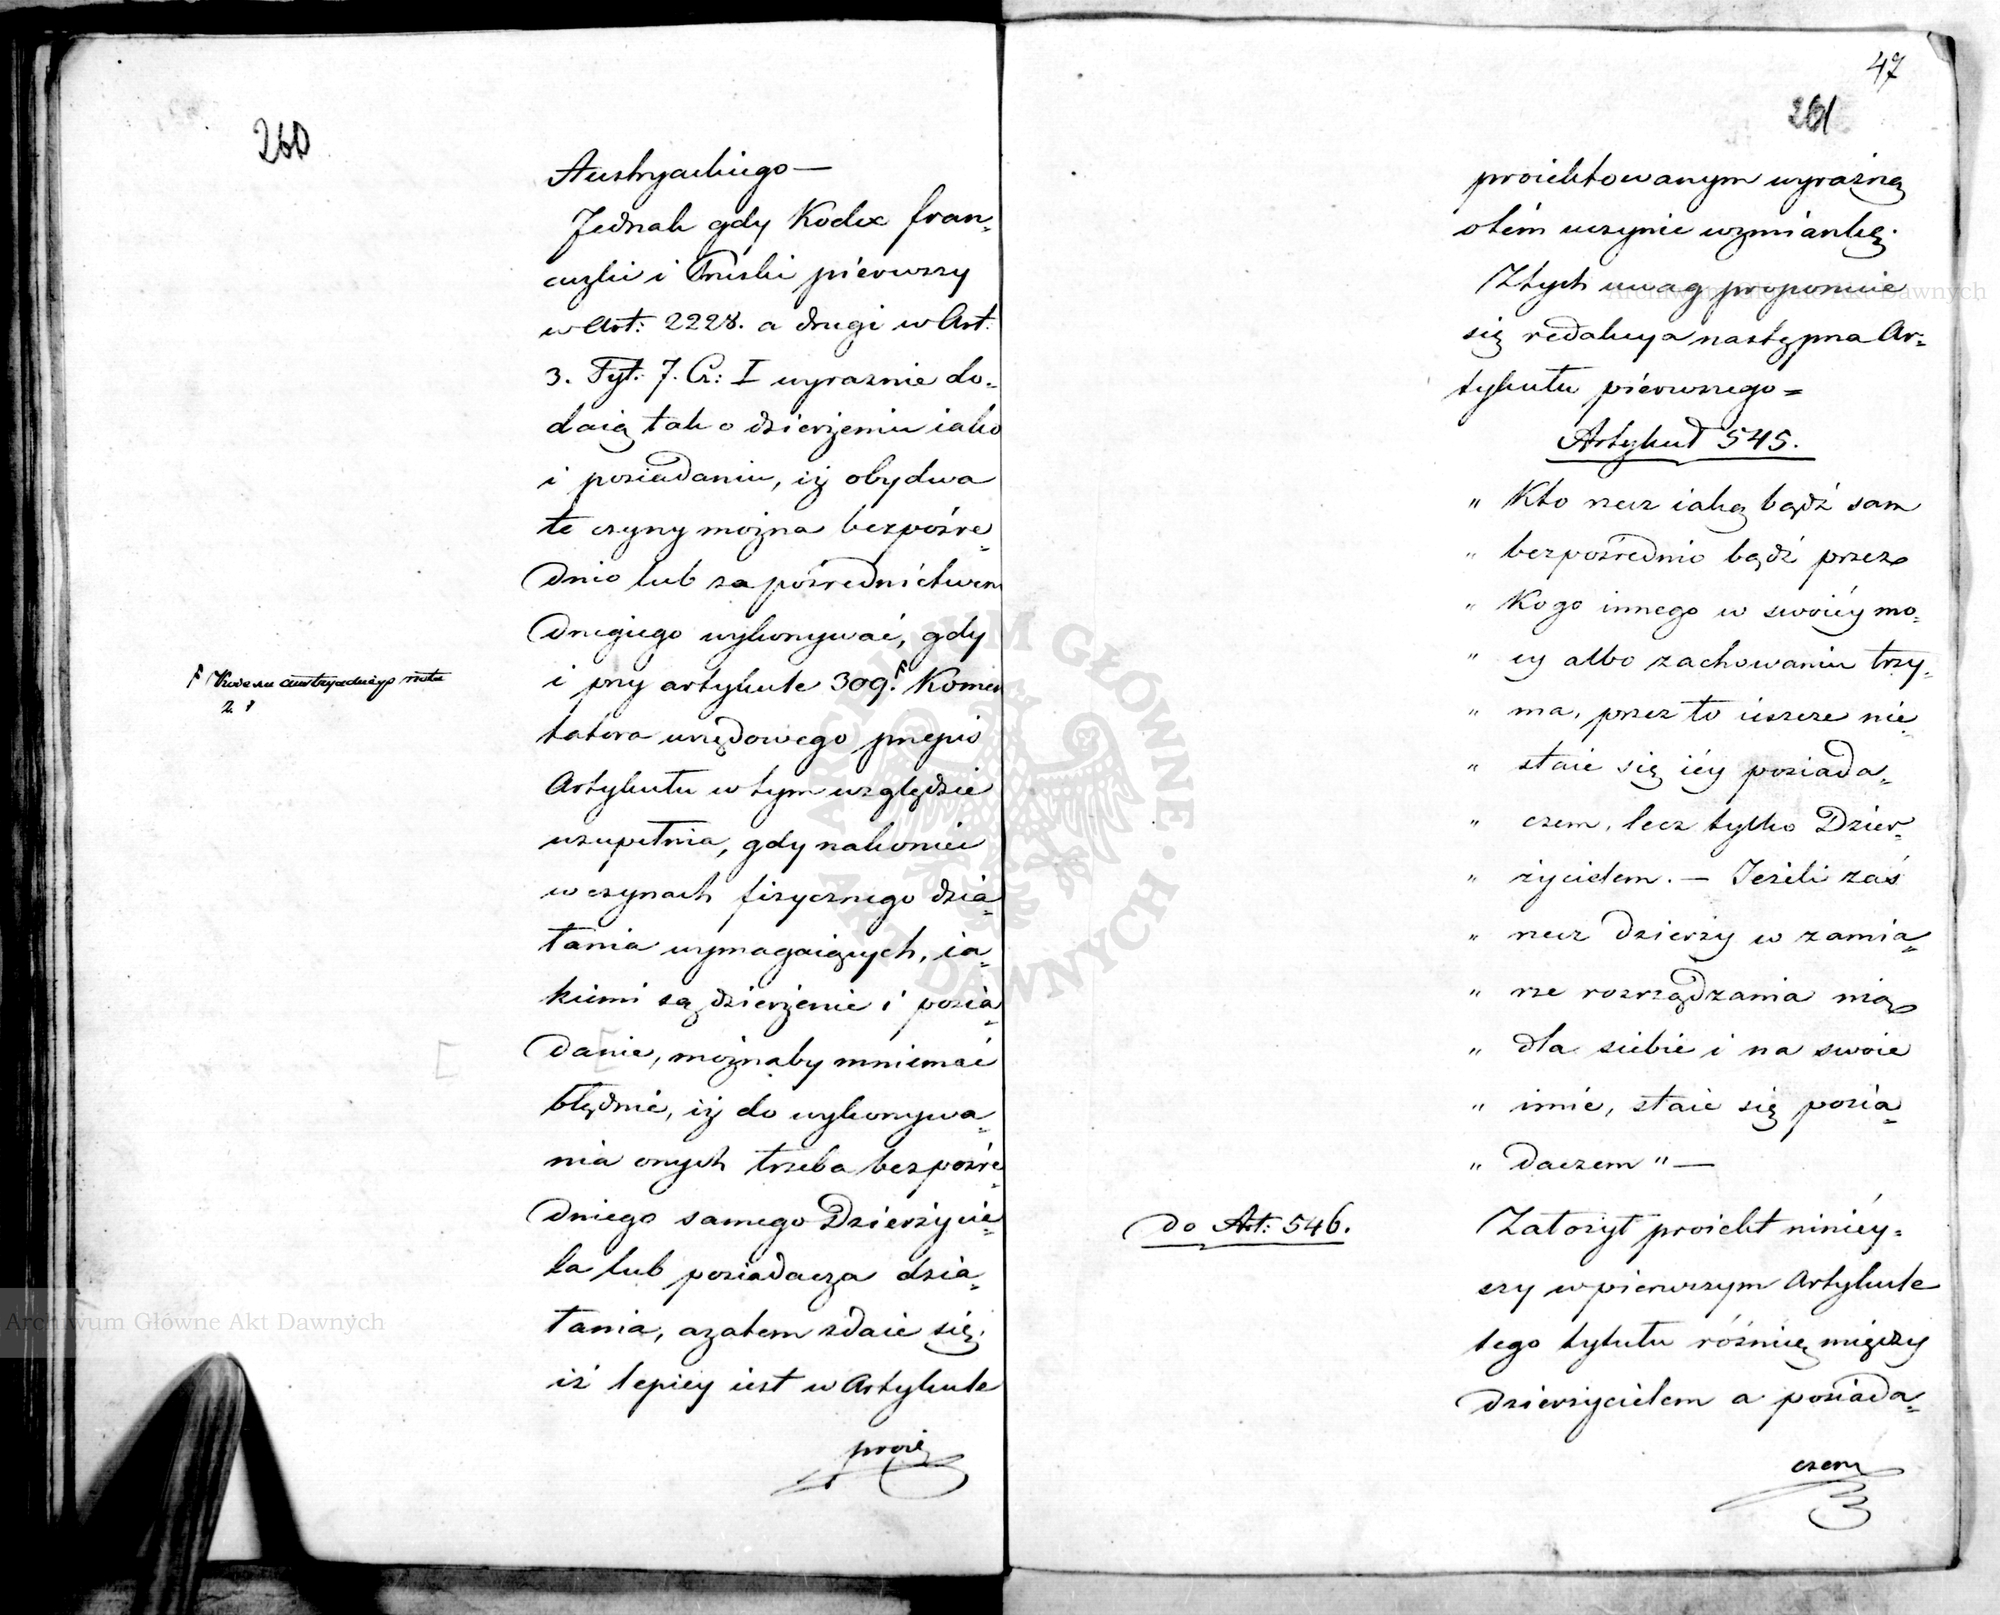 260
Austryackiego —
Jednak gdy Kodex fran-
cuzki i Pruski pierwszy
w Art: 2228. a drugi w Art:
3. Tyt: 7. Cz: I wyraznie do-
daią tak o dzierżeniu iako
i posiadaniu, iż obydwa
te czyny można bezpośre-
dnio lub za pośrednictwem
drugiego wykonywać, gdy
i przy artykule 309. F Komen
F Kodexu austryackiego nota
2.
tatora urzędowego przepis
Artykułu w tym względzie
uzupełnia, gdy nakoniec
w czynach fizycznego dzia-
łania wymagaiących, ia-
kiemi są dzierżenie i posia-
danie, możnaby mniemać
błędnie, iż do wykonywa-
nia onych trzeba bezpośre-
dniego samego Dzierżycie-
la lub posiadacza dzia-
łania, azatem zdaie się
iż lepiey iest w Artykule
proie
47
261
proiektowanym wyraźną
otém uczynić wzmiankę.
Z tych uwag proponuie
się redakcya następna Ar-
tykułu pierwszego =
Artykuł 545.
" Kto rzecz iaką bądź sam
" bezpośrednio bądź przez
" Kogo innego w swoiéy mo-
" cy albo zachowaniu trzy-
" ma, przez to ieszcze nie
" staie się iéy posiada-
" czem, lecz tylko Dzier-
" życielem. — Jeżeli zaś
" rzecz dzierży w zamia-
" rze rozrządzania nią
" dla siebie i na swoie
" imie, staie się posia-
" daczem " —
do Art: 546.
Założył proiekt niniéy-
szy w pierwszym Artykule
tego tytułu różnicę między
dzierżycielem a posiada-
czem
Archiwum Główne Akt Dawnych
Archiwum Główne Akt Dawnych
ARCHIWUM GŁÓWNE · AKT DAWNYCH ·